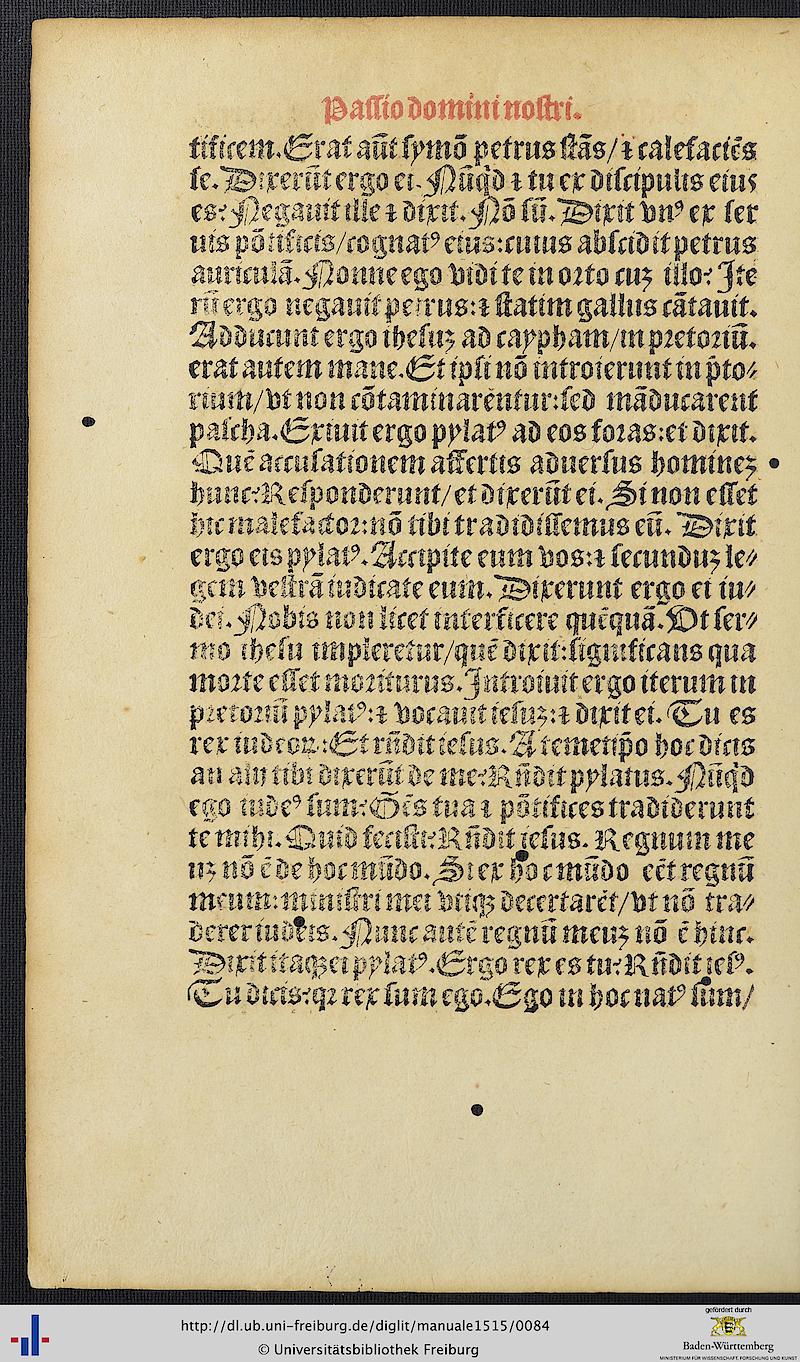 Passio domini nostri.
tificem. Erat aūt symō petrus stās/ ⁊ calefaciēs
se. Dixerūt ergo ei. Nūqͥd ⁊ tu ex discipulis eius
es? Negauit ille ⁊ dixit. Nō sū. Dixit vnꝰ ex ser
uis pōtificis/cognatꝰ eius: cuius abscidit petrus
auriculā. Nonne ego vidi te in orto cuz illo? Ite
rū ergo negauit petrus: ⁊ statim gallus cātauit.
Adducunt ergo ihesuz ad caypham/in pretoriū.
erat autem mane. Et ipsi nō introierunt in p̄to⸗
rium/vt non cōtaminarēntur: sed māducarent
pascha. Exiuit ergo pylatꝰ ad eos foras: et dixit.
Quē accusationem affertis aduersus hominez
hunc? Responderunt/et dixerūt ei. Si non esset
hic malefactor: nō tibi tradidissemus eū. Dixit
ergo eis pylatꝰ. Accipite eum vos: ⁊ secunduz le⸗
gem vestrā iudicate eum. Dixerunt ergo ei iu⸗
dei. Nobis non licet interficere quēquā. Vt ser⸗
mo ihesu impleretur/quē dixit: significans qua
morte esset moriturus. Introiuit ergo iterum in
pretoriū pylatꝰ: ⁊ vocauit iesuz: ⁊ dixit ei. Tu es
rex iudeoꝝ: Et rn̄dit iesus. A temetip̄o hoc dicis
an alij tibi dixerūt de me? Rn̄dit pylatus. Nūqͥd
ego iudeꝰ sum? Gēs tua ⁊ pōtifices tradiderunt
te mihi. Quid fecisti? Rn̄dit iesus. Regnum me
uz nō ē de hoc mūdo. Si ex hoc mūdo eēt regnū
meum: ministri mei vtiqꝫ decertarēt/vt nō tra⸗
derer iudeis. Nunc autē regnū meuz nō ē hinc.
Dixit itaqꝫ ei pylatꝰ. Ergo rex es tu? Rn̄dit iesꝰ.
Tu dicis? qꝛ rex sum ego. Ego in hoc natꝰ sum/
http://dl.ub.uni-freiburg.de/diglit/manuale1515/0084
© Universitätsbibliothek Freiburg
gefördert durch
Baden-Württemberg
MINISTERIUM FÜR WISSENSCHAFT, FORSCHUNG UND KUNST